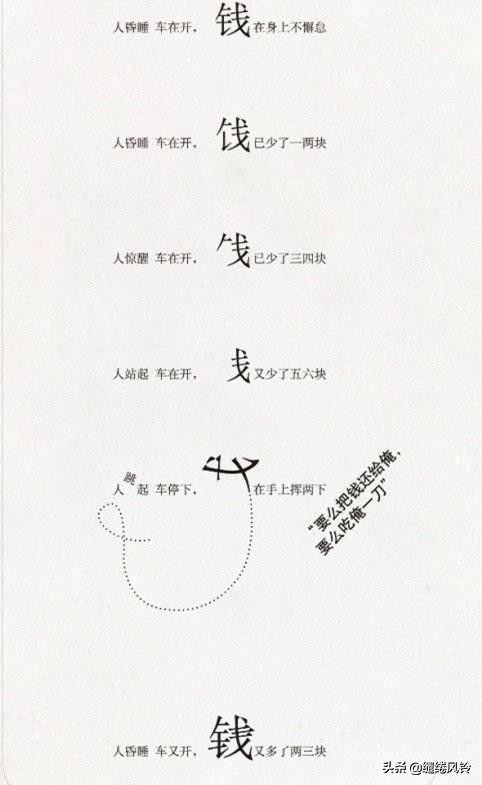 人昏睡 车在开， 钱在身上不懈怠
人昏睡 车在开， 饯已少了一两块
人惊醒 车在开， 已少了三四块
人站起 车在开， 戋又少了五六块
人跳起 车停下， 戈在手上挥两下
“要么把钱还给俺，
要么吃俺一刀”
人昏睡 车又开， 钱又多了两三块
头条 @缱绻风铃